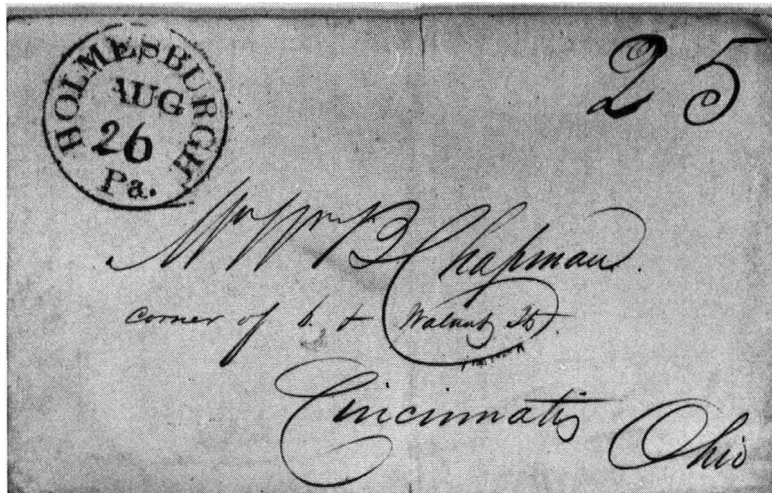 HOLMESBURGH
AUG
26
Pa.
25
Mr Wm B Chapman.
corner of 6. & Walnut St.
Cincinnati
Ohio